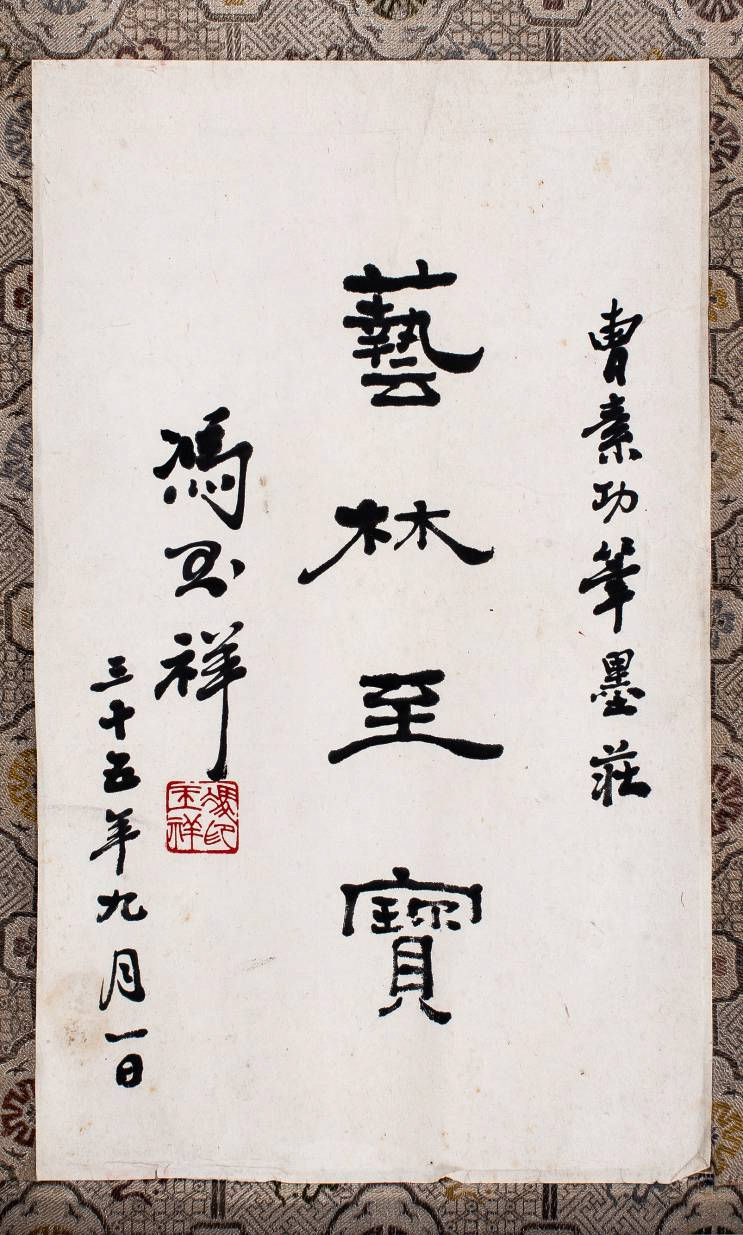 曹素功筆墨莊
藝林至寶
馮玉祥
三十五年九月一日
馮印
玉祥